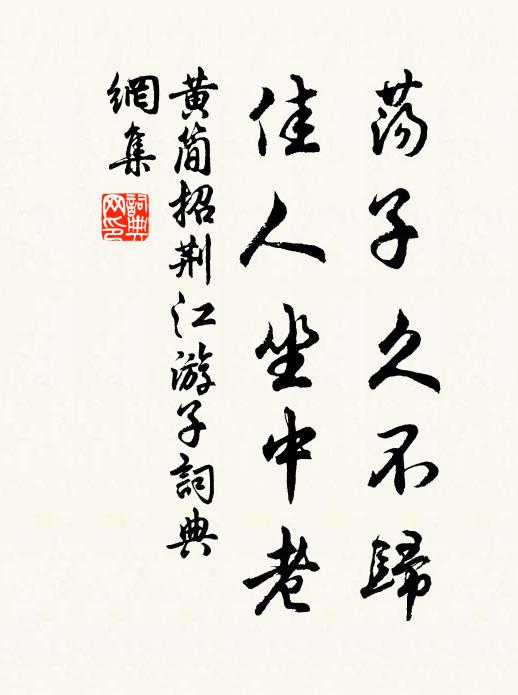 荡子久不歸
佳人坐中老
黄简招荆江游子詞典
網集
詞典
网印